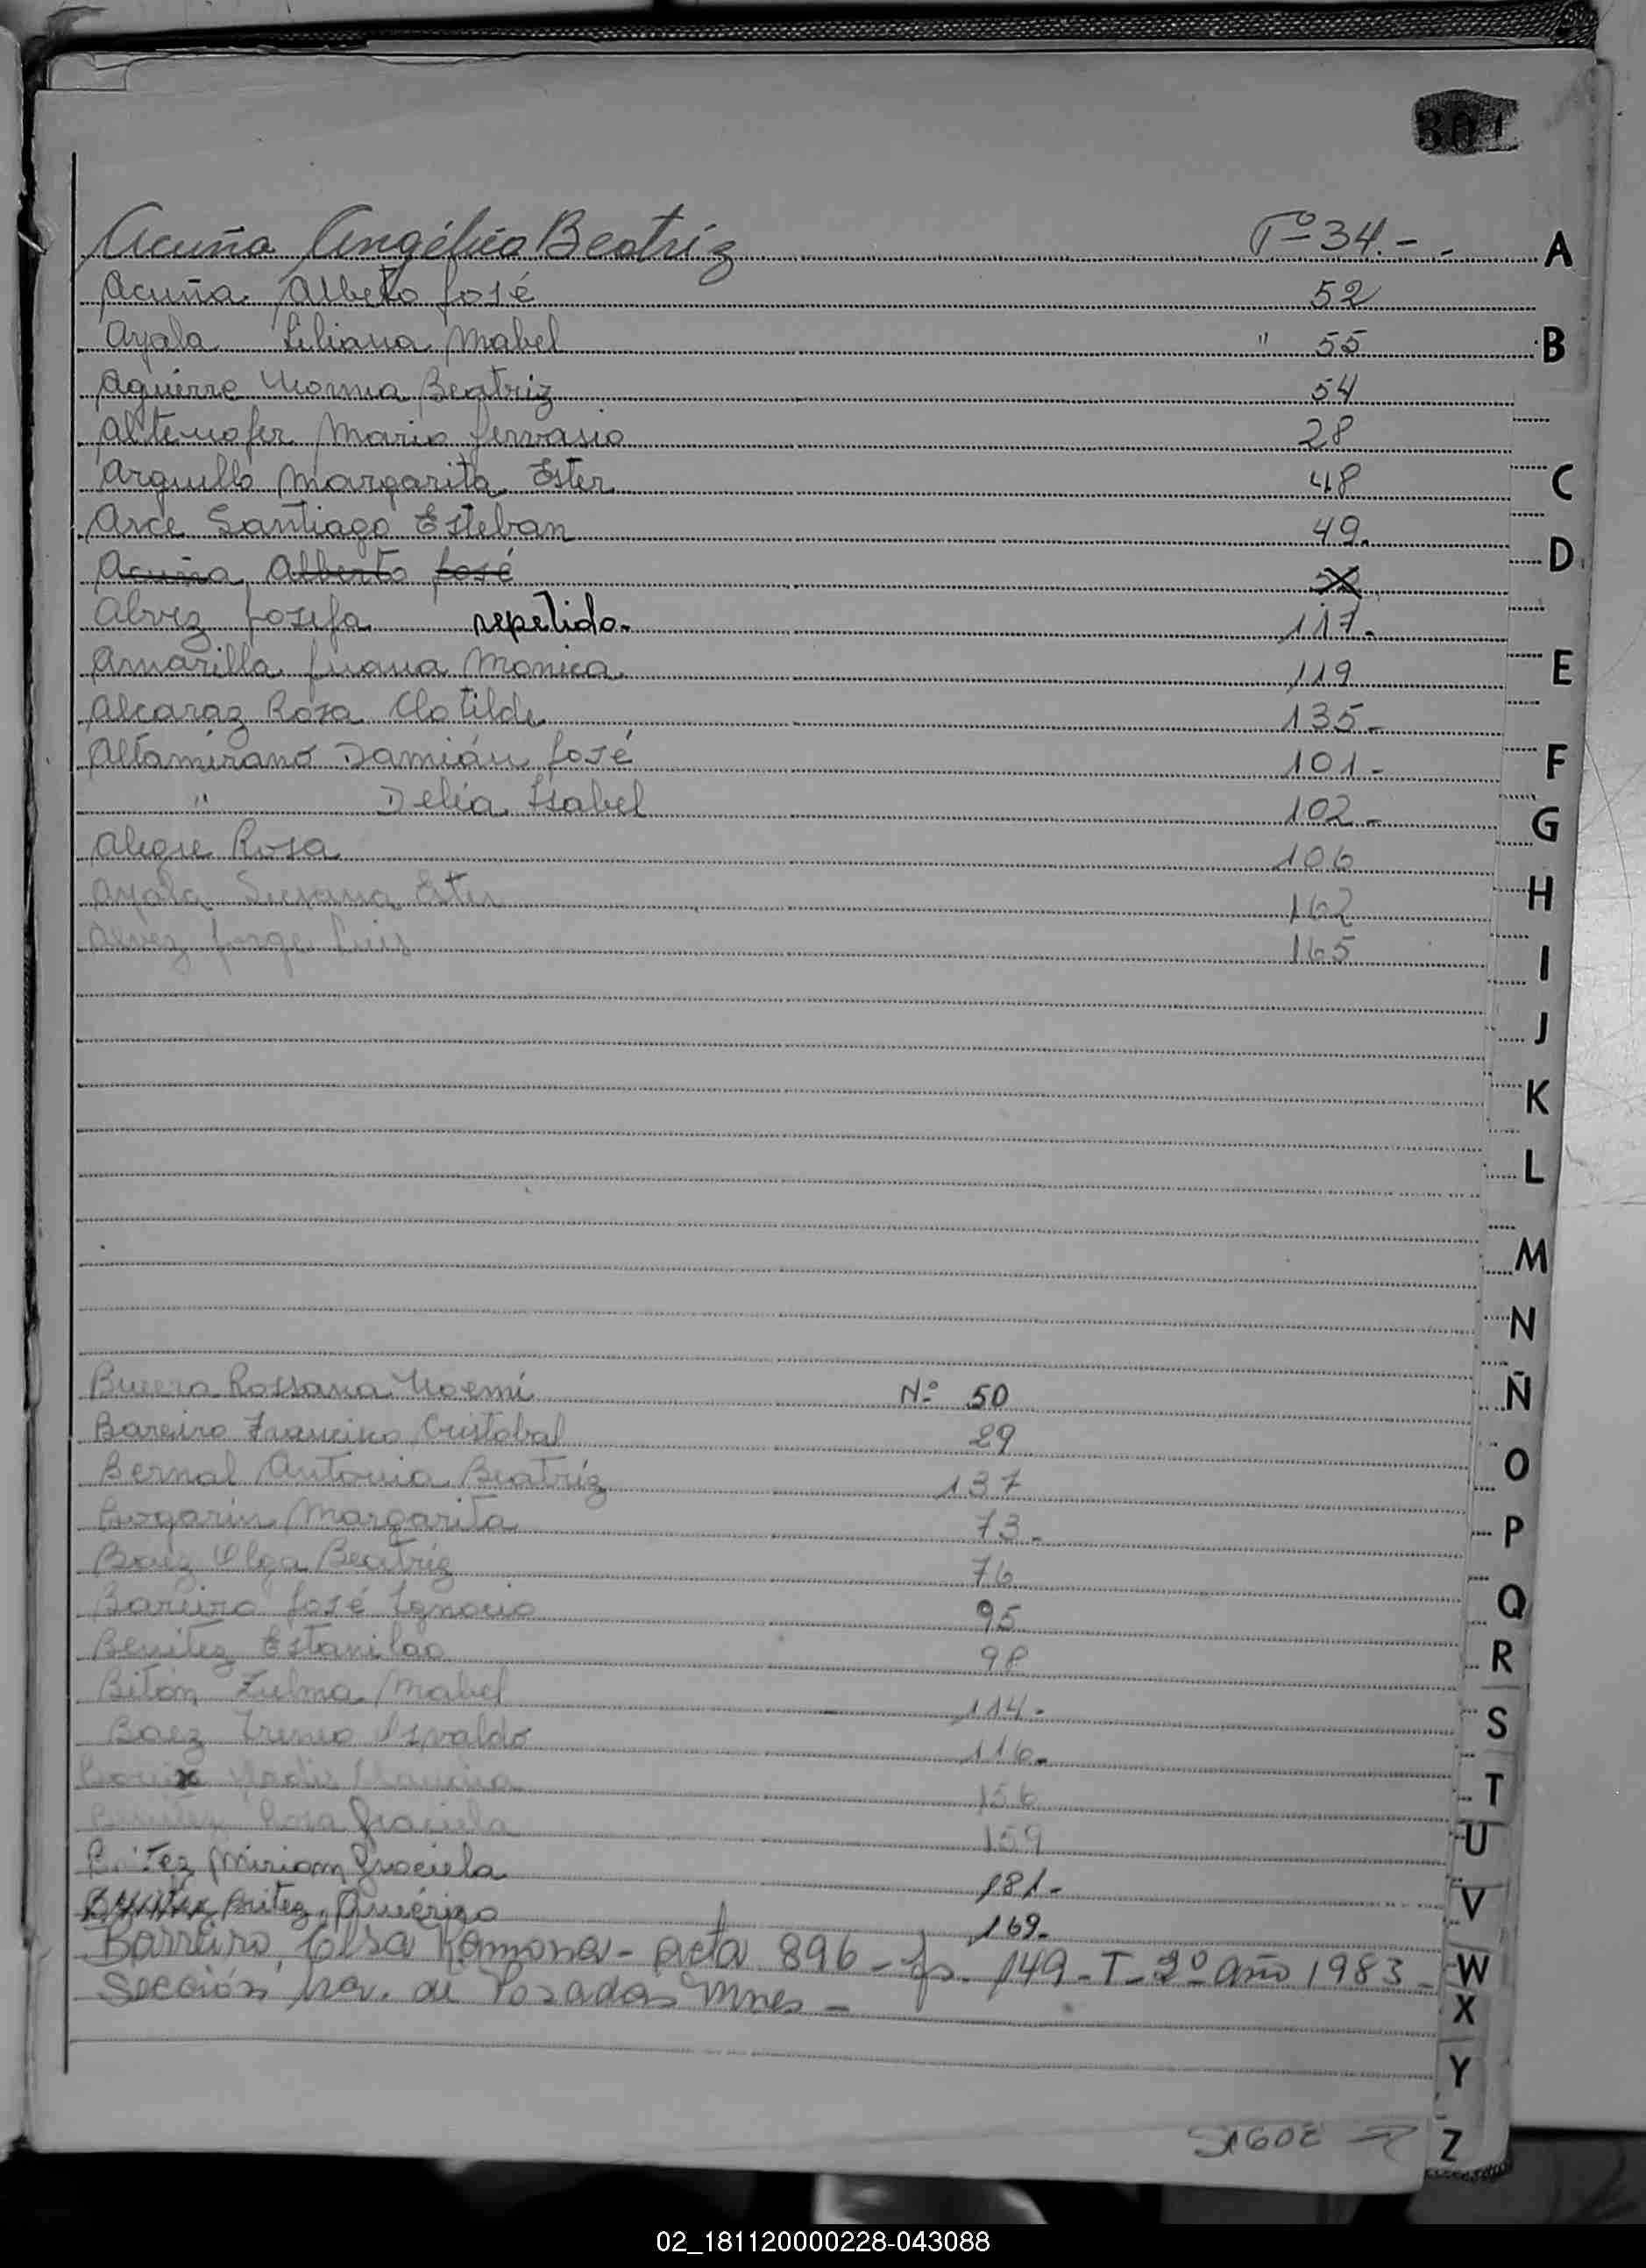 301
Acuña Angélica Beatríz Fº 34.- A
Acuña Alberto José 52
Ayala Liliana Mabel " 55 B
Aguirre Norma Beatriz 54
Altenofer Mario Gervasio 28
Arguello Margarita Ester 48 C
Arce Santiago Esteban 49. D
Acuña Alberto José
Alvez Josefa repetido. 117.
Amarilla Juana Monica 119 E
Alcaraz Rosa Clotilde 135-
Altamirano Damián José 101- F
" Delia Isabel 102- G
Alegre Rosa 106
Ayala Susana Ester 162 H
Alvez Jorge Luis 165 I
J
K
L
M
N
Rossana Noemí Nº 50 Ñ
Bareiro Francisco Cristobal 29
Bernal Antonia Beatríz 137 O
Bogarin Margarita 73- P
Baez Olga Beatríz 76
Bareiro José Ignacio 95 Q
Benitez Estanilao 98 R
Bitón Zulma Mabel 114- S
Baez Ireneo Osvaldo 116-
156 T
Benitez Rosa Graciela 159 U
Miriam Graciela 181- V
Britez, Américo 169.
Barreiro, Elsa Ramona - acta 896 - fs. 149 - T- 2º año 1983 - W
Sección, de Posadas Mnes - X
Y
SIGUE Z
02_181120000228-043088